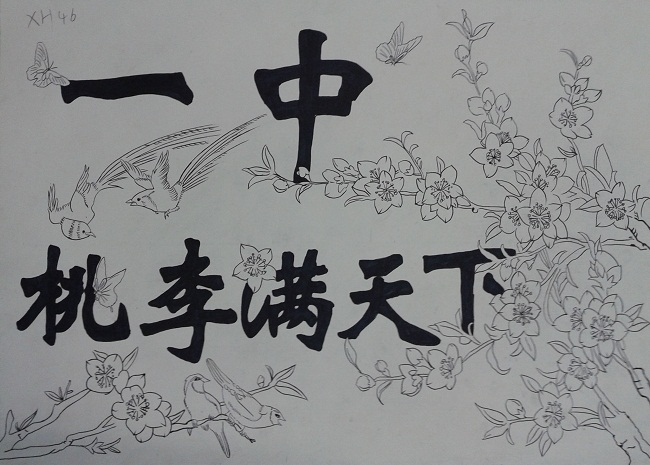 XH46
一中
桃李满天下